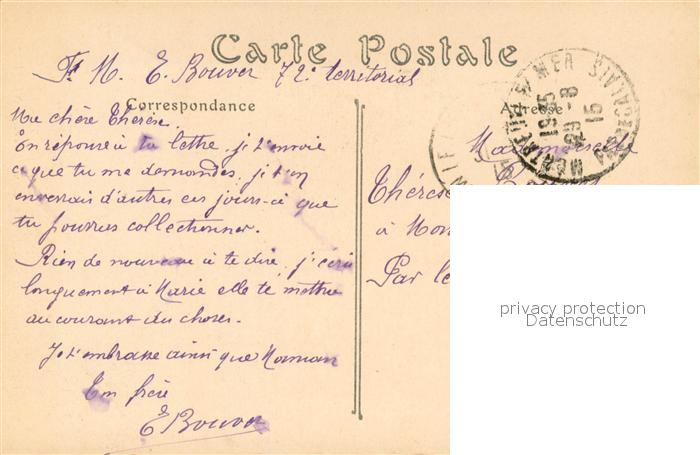 Carte Postale
Ft M. E. Bouver 72e territorial
Correspondance
Ma chère Thérèse.
En réponse à ta lettre, je t'envoie
ce que tu me demandes, je t'en
enverrais d'autres ces jours-ci que
tu pourras collectionner.
Rien de nouveau à te dire, j'écris
longuement à Marie elle te mettra
au courant des choses.
Je t'embrasse ainsi que Maman
Ton frère
E Bouver
Adresse
Mademoiselle
Thérèse
à Mon
Par le
19-45
29-8
15
privacy protection
Datenschutz